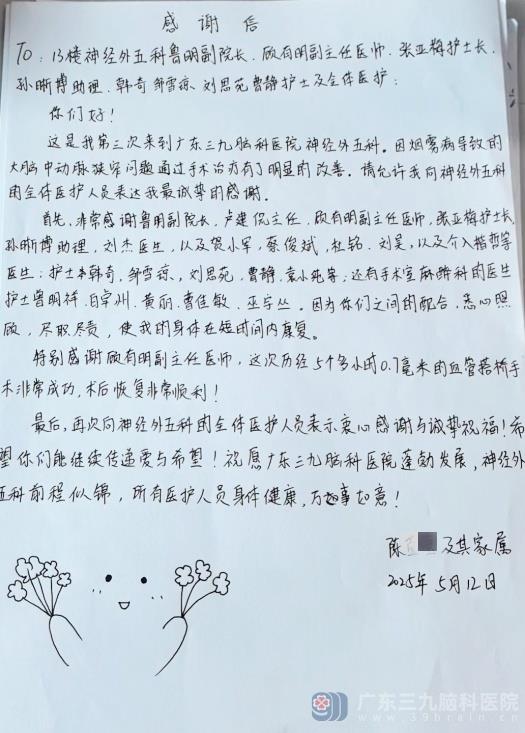 感谢信
To：13楼神经外五科鲁明副院长、顾有明副主任医师、张亚梅护士长、
孙晰博助理、韩奇、邹雪琼、刘思苑、曹静护士及全体医护：
你们好！
这是我第三次来到广东三九脑科医院神经外五科。因烟雾病导致的
大脑中动脉狭窄问题通过手术治疗有了明显的改善。请允许我向神经外五科
的全体医护人员表达我最诚挚的感谢。
首先，非常感谢鲁明副院长，卢建侃主任、顾有明副主任医师，张亚梅护士长，
孙晰博助理，刘杰医生，以及贺小军，蔡俊斌，杜铭、刘昊，以及介入楷哲等
医生；护士韩奇、邹雪琼，刘思苑，曹静，袁小苑等；还有手术室麻醉科的医生
护士曾明祥、白宇州、黄丽、曹佳敏、巫宇丛。因为你们之间的配合、悉心照
顾，尽职尽责，使我的身体在短时间内康复。
特别感谢顾有明副主任医师，这次历经5个多小时0.7毫米的血管搭桥手
术非常成功，术后恢复非常顺利！
最后，再次向神经外五科的全体医护人员表示衷心感谢与诚挚祝福！希
望你们能继续传递爱与希望！祝愿广东三九脑科医院蓬勃发展，神经外
五科前程似锦，所有医护人员身体健康，万事如意！
陈 及其家属
2025年5月12日
广东三九脑科医院
www.39brain.cn